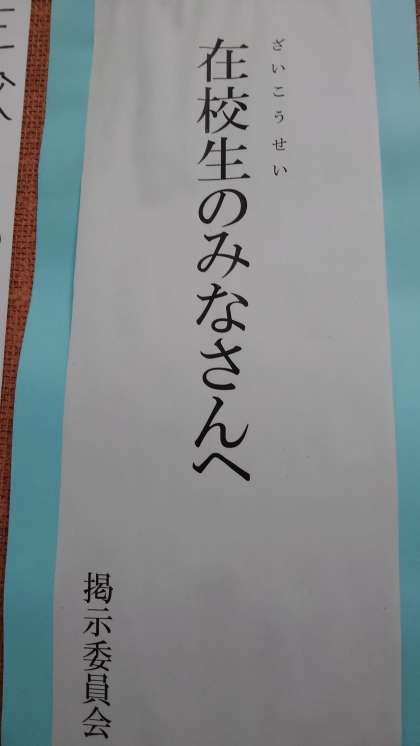 ざいこうせい
在校生のみなさんへ
掲示委員会